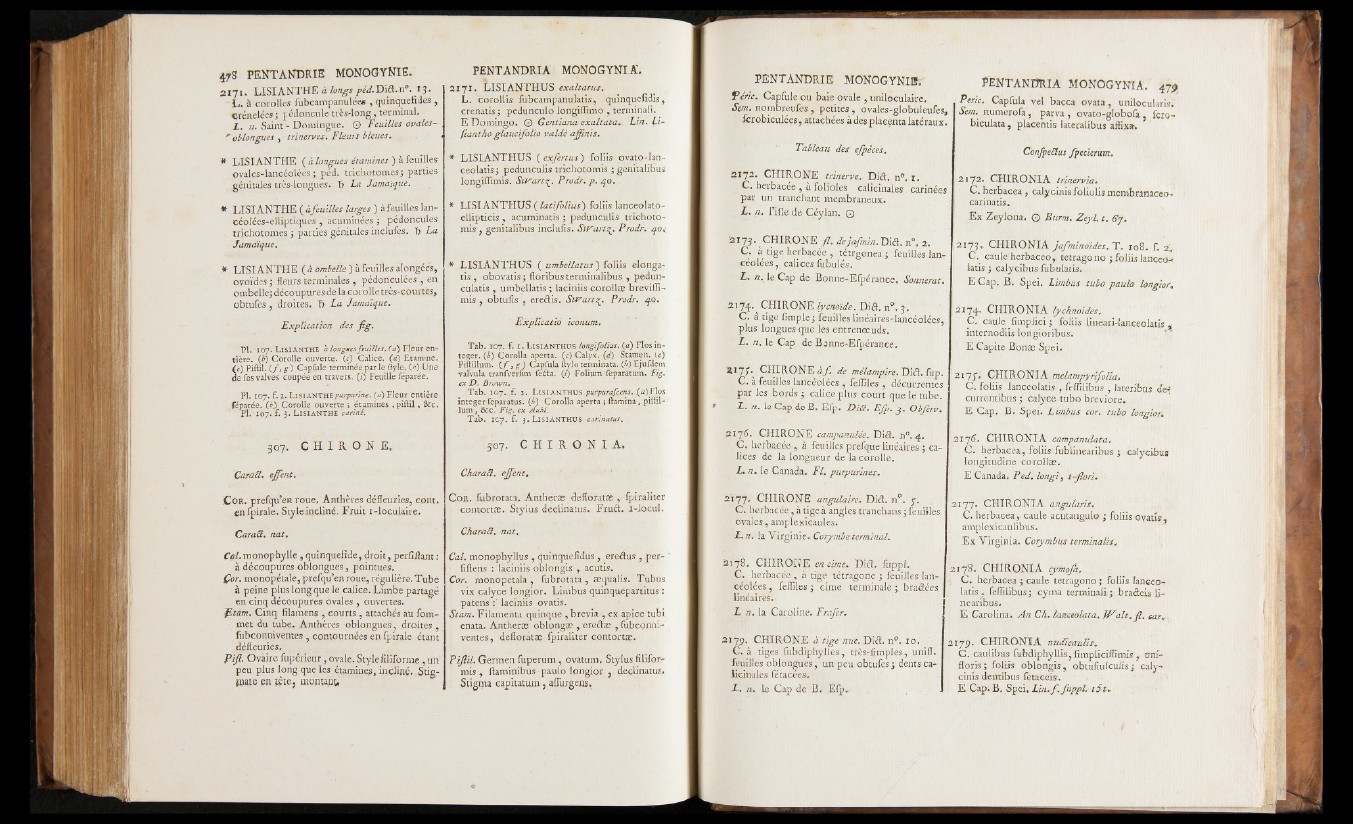 478 PENTANDRIE MONOGYNIE.
2171. LISIANTHE à longs péd. Dict. n°. 13.
L. à corolles subcampanulées, quinquefides,
crénelées; pédoncule très-long, terminal.
L. n. Saint-Domingue. ☉ Feuilles ovales-
oblongues, trinerves. Fleurs bleues.
* LISIANTHE (à longues étamines) à feuilles
ovales-lancéolées; péd. trichotomes; parties
génitales très-longues. ♄ La Jamaïque.
* LISIANTHE (à feuilles larges) à feuilles lan-
céolées-elliptiques, acuminées; pédoncules
trichotomes; parties génitales incluses. ♄ La
Jamaïque.
* LISIANTHE (à ombelle) à feuilles alongées,
ovoïdes; fleurs terminales, pédonculées, en
ombelle; découpures de la corolle très-courtes,
obtuses, droites. ♄ La Jamaïque.
Explication des fig.
Pl. 107. LISIANTHE à longues feuilles. (a) Fleur en-
tière. (b) Corolle ouverte. (c) Calice. (d) Etamine.
(e) Pistil. (f, g) Capsule terminée par le style. (h) Une
de ses valves coupée en travers. (i) Feuille séparée.
Pl. 107. f. 2. LISIANTHE purpurine. (a) Fleur entière
séparée. (b) Corolle ouverte; étamines, pistil, &c.
Pl. 107. f. 3. LISIANTHE cariné.
307. CHIRONE.
Caract. essent.
COR. presqu'en roue. Anthères défleuries, cont.
en spirale. Style incliné. Fruit 1-loculaire.
Caract. nat.
Cal. monophylle, quinquefide, droit, persistant:
à découpures oblongues, pointues.
Cor. monopétale, presqu'en roue, régulière. Tube
à peine plus long que le calice. Limbe partagé
en cinq découpures ovales, ouvertes.
Etam. Cinq filamens, courts, attachés au som-
met du tube. Anthères oblongues, droites,
subconniventes, contournées en spirale étant
défleuries.
Pist. Ovaire supérieur, ovale. Style filiforme, un
peu plus long que les étamines, incliné. Stig-
mate en tête, montant.
PENTANDRIA MONOGYNIA.
2171. LISIANTHUS exaltatus.
L. corollis subcampanulatis, quinquefidis,
crenatis; pedunculo longissimo, terminali.
E Domingo. ☉ Gentiana exaltata. Lin. Li-
siantho glaucifolio valdè affinis.
* LISIANTHUS (exsertus) foliis ovato-lan-
ceolatis; pedunculis trichotomis; genitalibus
longissimis. Swartz. Prodr. p. 40.
* LISIANTHUS (latifolius) foliis lanceolato-
ellipticis, acuminatis; pedunculis trichoto-
mis, genitalibus inclusis. Swartz. Prodr. 40.
* LISIANTHUS (umbellatus) foliis elonga-
tis, obovatis; floribus terminalibus, pedun-
culatis, umbellatis; laciniis corollæ brevissi-
mis, obtusis, erectis. Swartz. Prodr. 40.
Explicatio iconum.
Tab. 107. f. 1. LISIANTHUS longifolius. (a) Flos in-
teger. (b) Corolla aperta. (c) Calyx. (d) Stamen. (e)
Pistillum. (f, g) Capsula stylo terminata. (h) Ejusdem
valvula transversim secta. (i) Folium separatum. Fig.
ex D. Brown.
Tab. 107. f. 2. LISIANTHUS purpurascens. (a) Flos
integer separatus. (b) Corolla aperta; stamina, pistil-
lum, &c. Fig. ex Aubl.
Tab. 107. f. 3. LISIANTHUS carinatus.
307. CHIRONIA.
Charact. essent.
COR. subrotata. Antheræ defloratæ, spiraliter
contortæ. Stylus declinatus. Fruct. 1-locul.
Charact. nat.
Cal. monophyllus, quinquefidus, erectus, per-
sistens: laciniis oblongis, acutis.
Cor. monopetala, subrotata, æqualis. Tubus
vix calyce longior. Limbus quinquepartitus:
patens: laciniis ovatis.
Stam. Filamenta quinque, brevia, ex apice tubi
enata. Antheræ oblongæ, erectæ, subconni-
ventes, defloratæ spiraliter contortæ.
Pistil. Germen superum, ovatum. Stylus filifor-
mis, staminibus paulo longior, declinatus.
Stigma capitatum, assurgens.
PENTANDRIE MONOGYNIE.
Péric. Capsule ou baie ovale, uniloculaire.
Sem. nombreuses, petites, ovales-globuleuses,
scrobiculées, attachées à des placenta latéraux.
Tableau des espèces.
2172. CHIRONE trinerve. Dict. n°. 1.
C. herbacée, à folioles calicinales carinées
par un tranchant membraneux.
L. n. l'isle de Céylan. ☉
2173. CHIRONE fl. de jasmin. Dict. n°. 2.
C. à tige herbacée, tétrgonea; feuilles lan-
céolées, calices subulés.
L. n. le Cap de Bonne-Espérance. Sonnerat.
2174. CHIRONE lycnoide. Dict. n°. 3.
C. à tige simple; feuilles linéaires-lancéolées,
plus longues que les entrenœuds.
L. n. le Cap de Bonne-Espérance.
2175. CHIRONE à f. de mélampire. Dict. sup.
C. à feuilles lancéolées, sessiles, décurrentes
par les bords; calice plus court que le tube.
L. n. le Cap de B. Esp. Dict. Esp. 3. Observ.
2176. CHIRONE campanulée. Dict. n°. 4.
C. herbacée, à feuilles presque linéaires; ca-
lices de la longueur de la corolle.
L. n. le Canada. Fl. purpurines.
2177. CHIRONE angulaire. Dict. n°. 5.
C. herbacée, à tige à angles tranchans; feuilles
ovales, amplexicaules.
L. n. la Virginie. Corymbe terminal.
2178. CHIRONE en cime. Dict. suppl.
C. herbacée, à tige tétragone; feuilles lan-
céolées, sessiles; cime terminale; bractées
linéaires.
L. n. la Caroline. Fraser.
2179. CHIRONE à tige nue. Dict. n°. 10.
C. à tiges subdiphylles, très-simples, unifl.
feuilles oblongues, un peu obtuses; dents ca-
licinales sétacées.
L. n. le Cap de B. Esp.
PENTANDRIA MONOGYNIA. 479
Peric. Capsula vel bacca ovata, unilocularis.
Sem. numerosa, parva, ovato-globosa, scro-
biculata, placentis lateralibus affixa.
Conspectus specierum.
2172. CHIRONIA trinervia.
C. herbacea, calycinis foliolis membranaceo-
carinatis.
Ex Zeylona. ☉ Burm. Zeyl. t. 67.
2173. CHIRONIA jasminoides. T. 108. f. 2.
C. caule herbaceo, tetragono; foliis lanceo-
latis; calycibus subulatis.
E Cap. B. Spei. Limbus tubo paulo longior.
2174. CHIRONIA lychnoides.
C. caule simplici; foliis lineari-lanceolatis,
internodiis longioribus.
E Capite Bonæ Spei.
2175. CHIRONIA melampyrifolia.
C. foliis lanceolatis, sessilibus, lateribus de-
currentibus; calyce tubo breviore.
E Cap. B. Spei. Limbus cor. tubo longior.
2176. CHIRONIA campanulata.
C. herbacea, foliis sublinearibus; calycibus
longitudine corollæ.
E Canada. Ped. longi, 1-flori.
2177. CHIRONIA angularis.
C. herbacea, caule acutangulo; foliis ovatis,
amplexicaulibus.
Ex Virginia. Corymbus terminalis.
2178. CHIRONIA cymosa.
C. herbacea; caule tetragono; foliis lanceo-
latis, sessilibus; cyma terminali; bracteis li-
nearibus.
E Carolina. An Ch. lanceolata. Walt. fl. car.
2179. CHIRONIA nudicaulis.
C. caulibus subdiphyllis, simplicissimis, uni-
floris; foliis oblongis, obtusiusculis; caly-
cinis dentibus setaceis.
E Cap. B. Spei. Lin. f. suppl. 151.